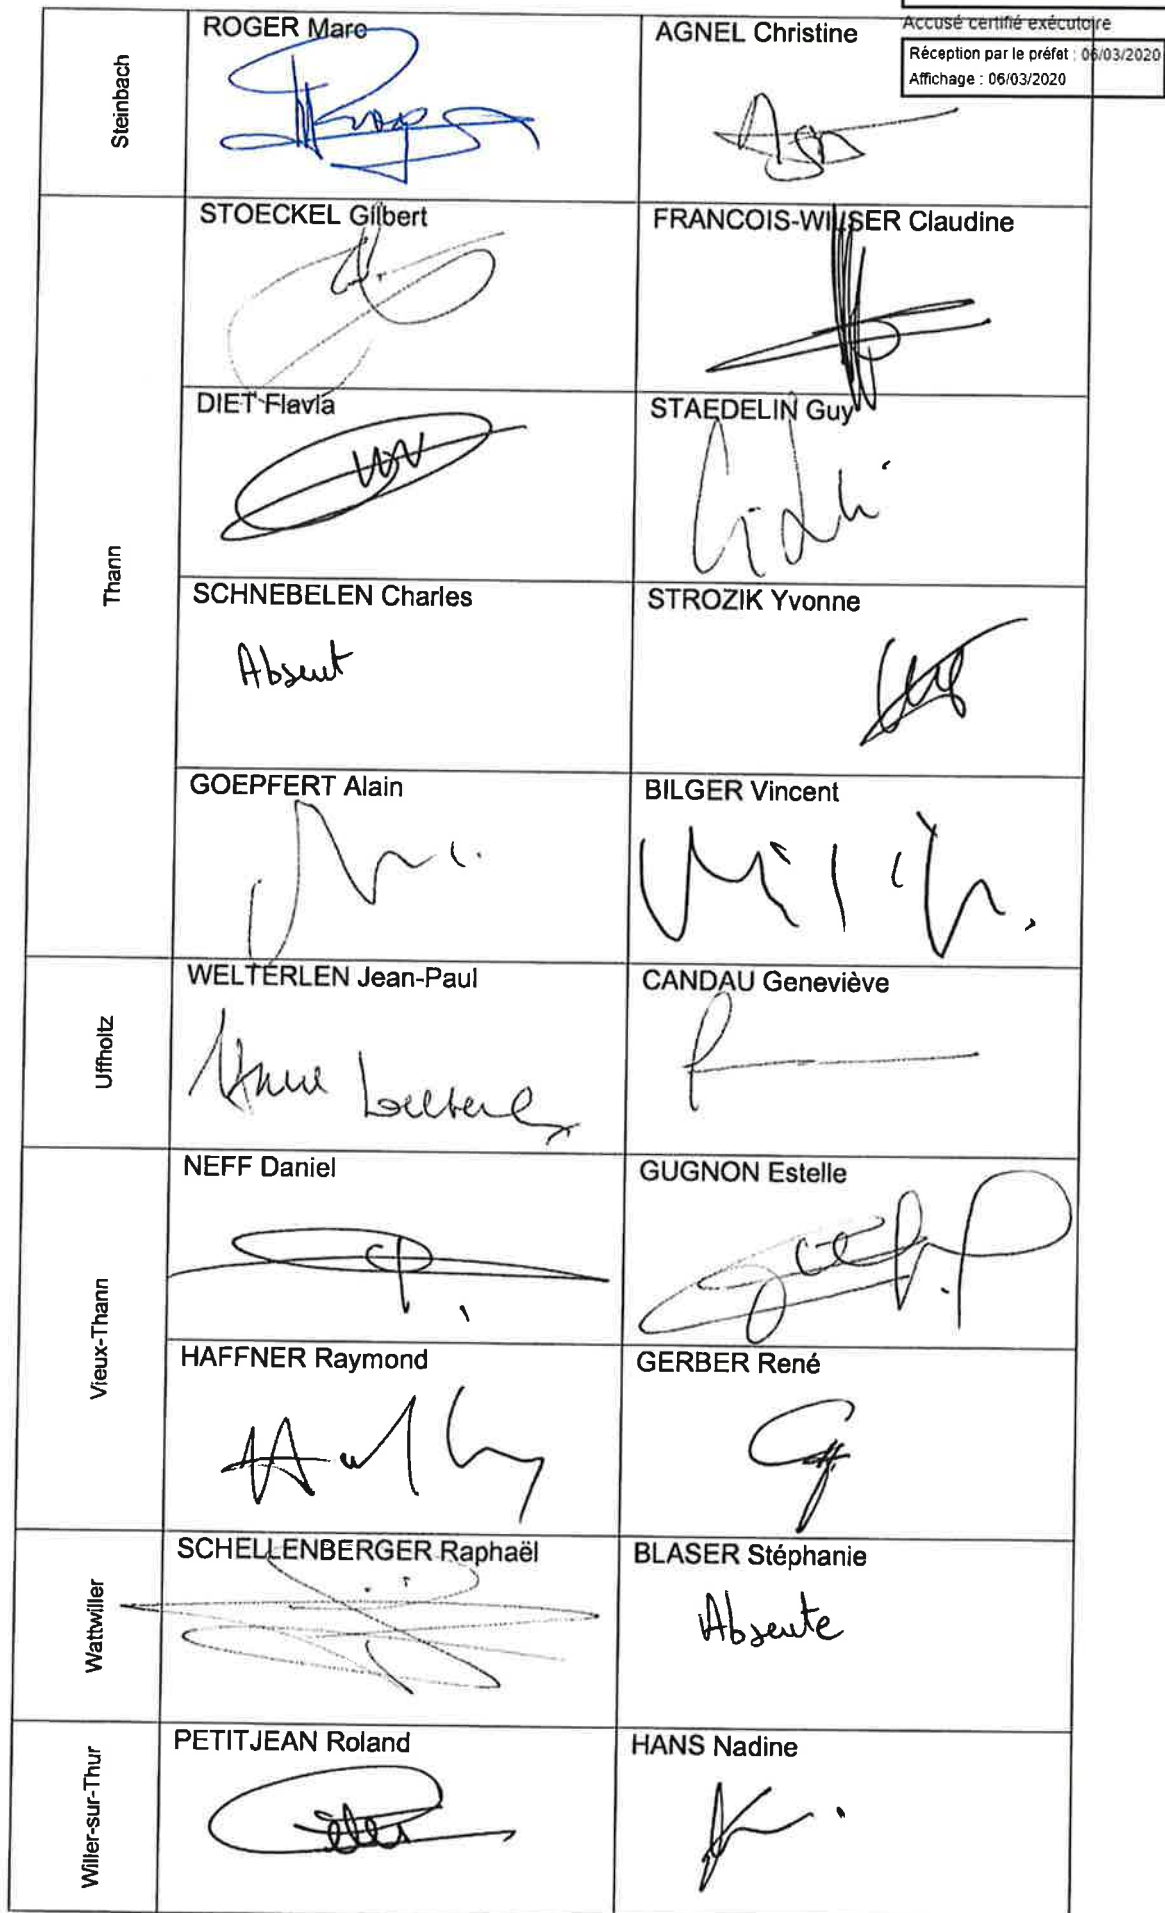 Accusé certifié exécutoire
Réception par le préfet : 06/03/2020
Affichage : 06/03/2020
Steinbach
ROGER Marc
AGNEL Christine
Thann
STOECKEL Gilbert
FRANCOIS-WILLSER Claudine
DIET Flavia
STAEDELIN Guy
SCHNEBELEN Charles
Absent
STROZIK Yvonne
GOEPFERT Alain
BILGER Vincent
Uffholtz
WELTERLEN Jean-Paul
CANDAU Geneviève
Vieux-Thann
NEFF Daniel
GUGNON Estelle
HAFFNER Raymond
GERBER René
Wattwiller
SCHELLENBERGER Raphaël
BLASER Stéphanie
Absente
Willer-sur-Thur
PETITJEAN Roland
HANS Nadine